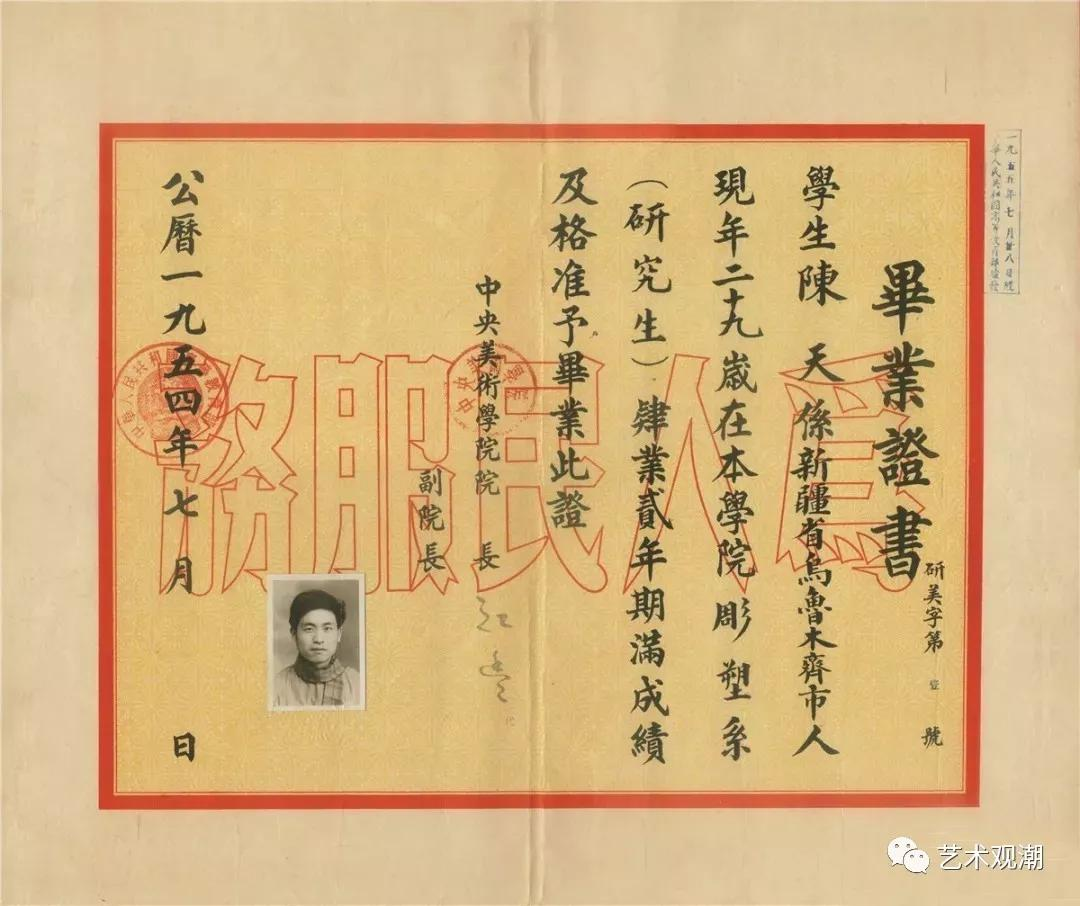 一九五五年七月廿八日經
華人民共和國高等教育部驗發
畢業證書
研美字第 壹 號
學生陳 天 係新疆省烏魯木齊市人
現年二十九歲在本學院彫塑系
（研究生）肄業貳年期滿成績
及格准予畢業此證
中央美術學院院 長 江豐 代
副院長
公曆一九五四年七月 日
爲人民服務
艺术观潮